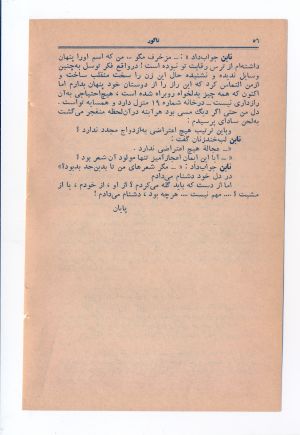 ۵۶ تاگور
نابن جوابداد : «... مزخرف مگو .. من که اسم اورا پنهان
داشته‌ام از ترس رقابت تو نبوده است ! درواقع فکر توسل به‌چنین
وسایل ندیده و نشنیده حال این زن را سخت منقلب ساخت و
ازمن التماس کرد که این راز را از دوستان خود پنهان بدارم اما
اکنون که همه چیز بدلخواه روبراه شده است ، هیچ‌احتیاجی به‌راز
رازداری نیست .. درخانه شماره ۱۹ منزل دارد و همسایه تواست .
دل من حتی اگر دیگ مسی بود هرآینه درآن‌لحظه منفجر می‌گشت
به‌لحن ساده‌ای پرسیدم :
وباین ترتیب هیچ اعتراضی به‌ازدواج مجدد ندارد ؟
نابن لبخندزنان گفت :
«... عجالة هیچ اعتراضی ندارد .
«... آیا این ایمان اعجازآمیز تنها مولود آن شعر بود ؟
نابن جوابداد : «... مگر شعرهای من تا بدین‌حد بدبود؟»
در دل خود دشنام می‌دادم
اما از دست که باید گله می‌کردم ؟ از او ، از خودم ، یا از
مشیت ؟ .... مهم نیست .... هرچه بود ، دشنام می‌دادم !
پایان